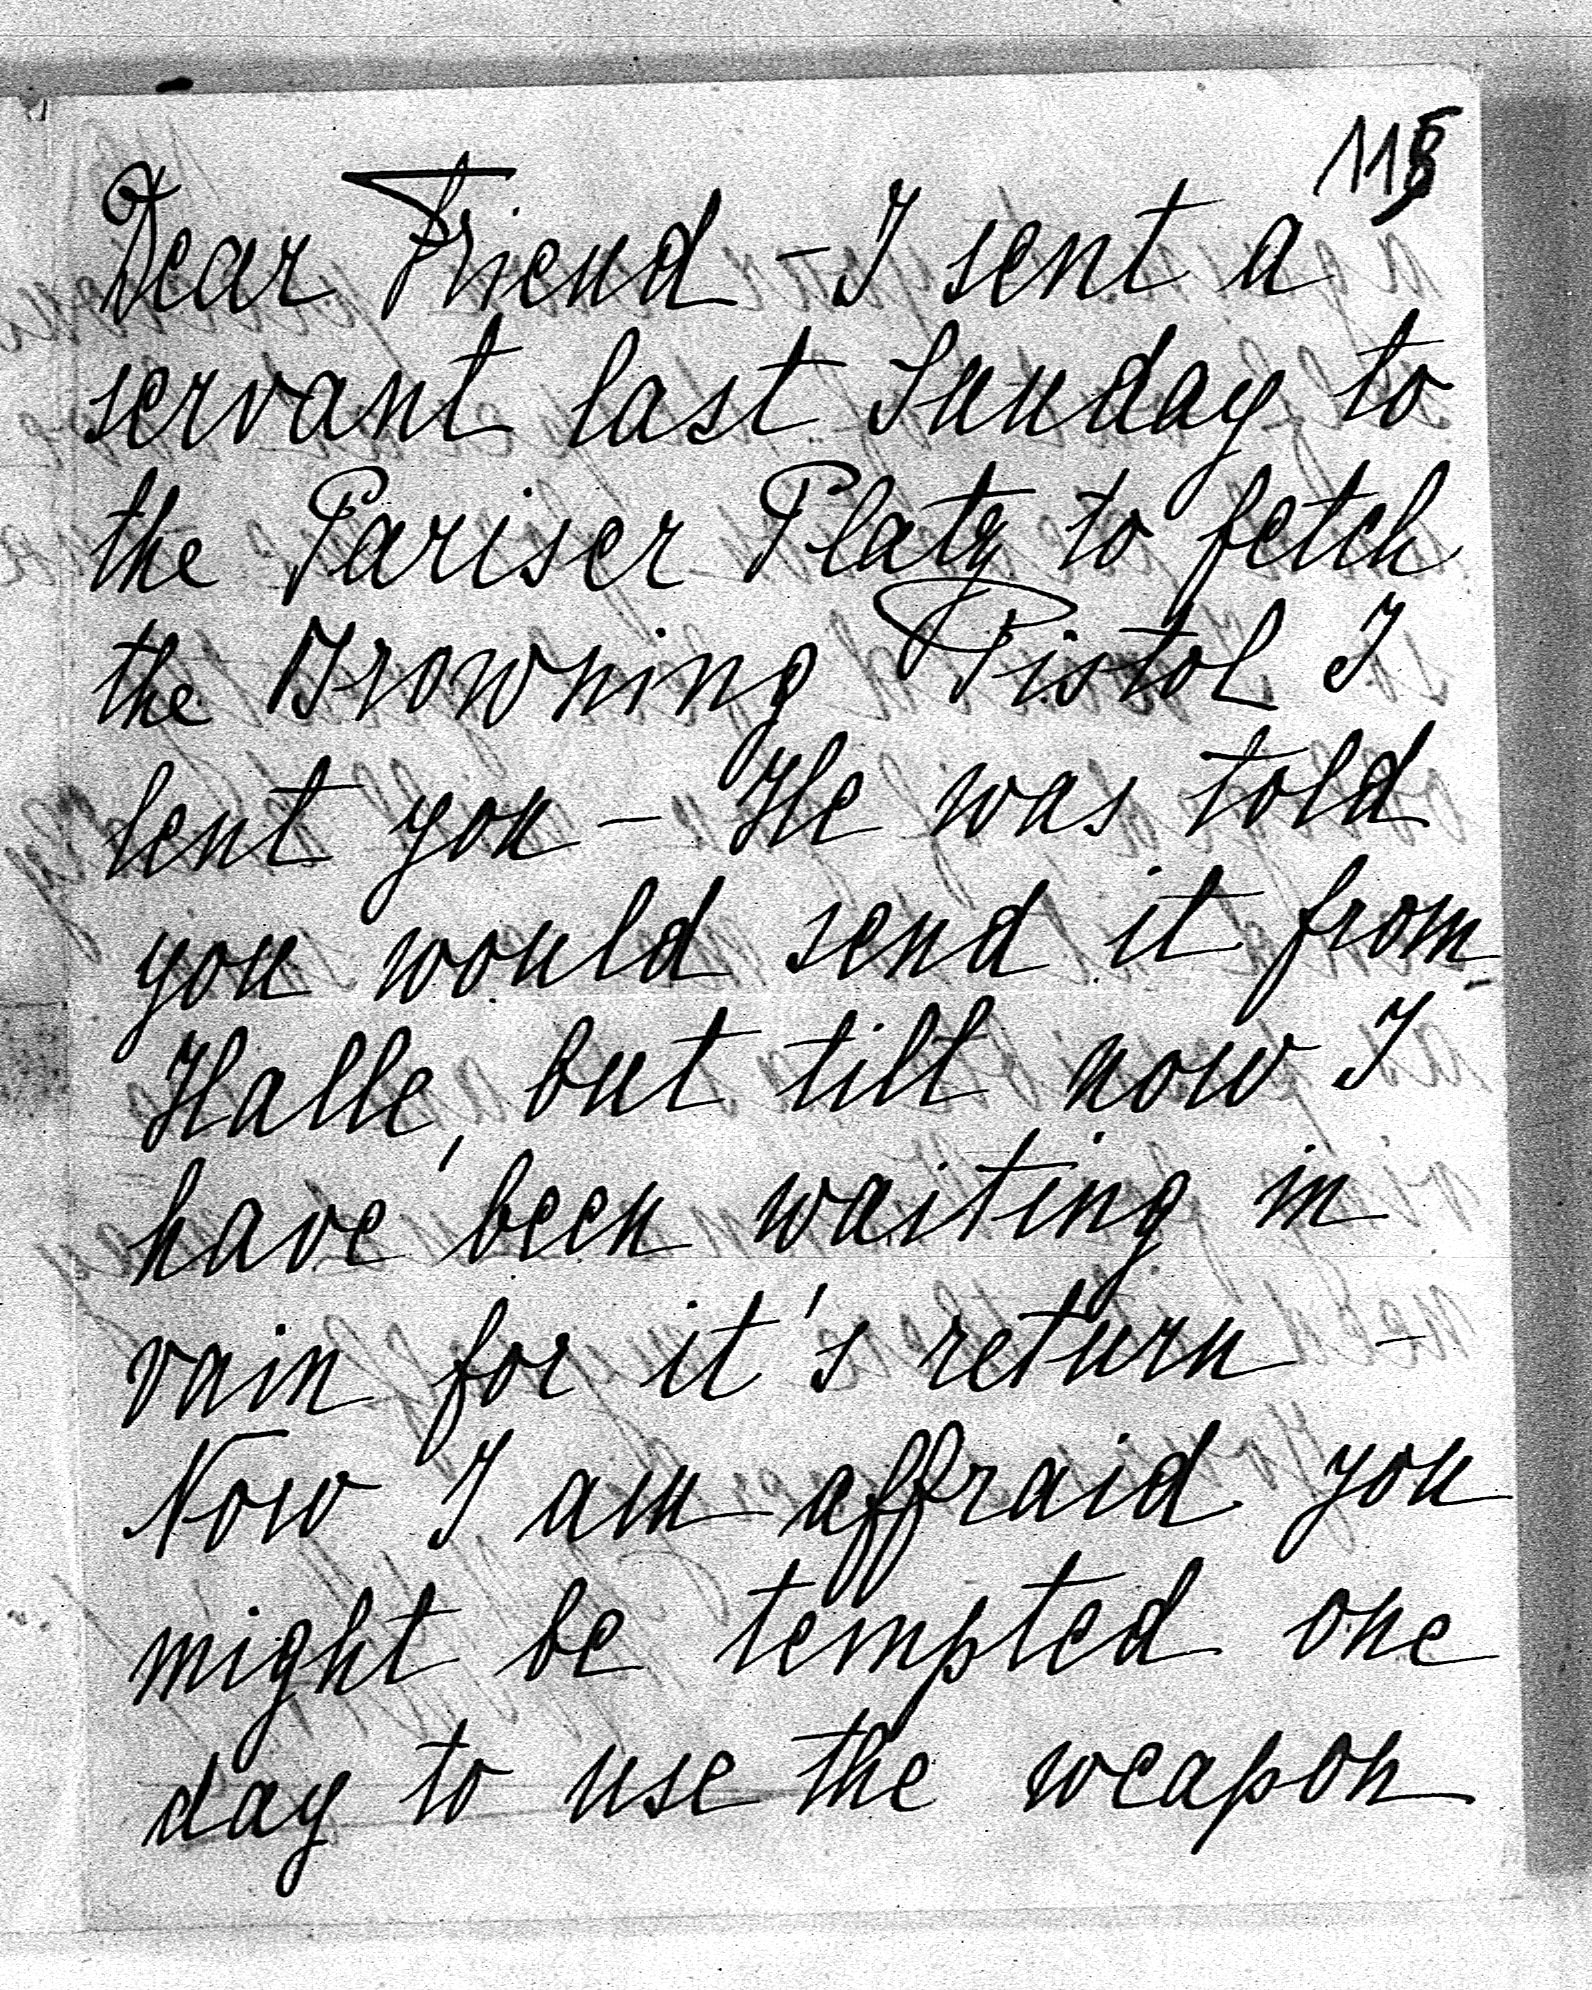 115
Dear Friend - I sent a
servant last Sunday to
the Pariser Platz to fetch
the Browning Pistol I
lent you - He was told
you would send it from
Halle, but till now I
have been waiting in
vain for it's return -
Now I am affraid you
might be tempted one
day to use the weapon